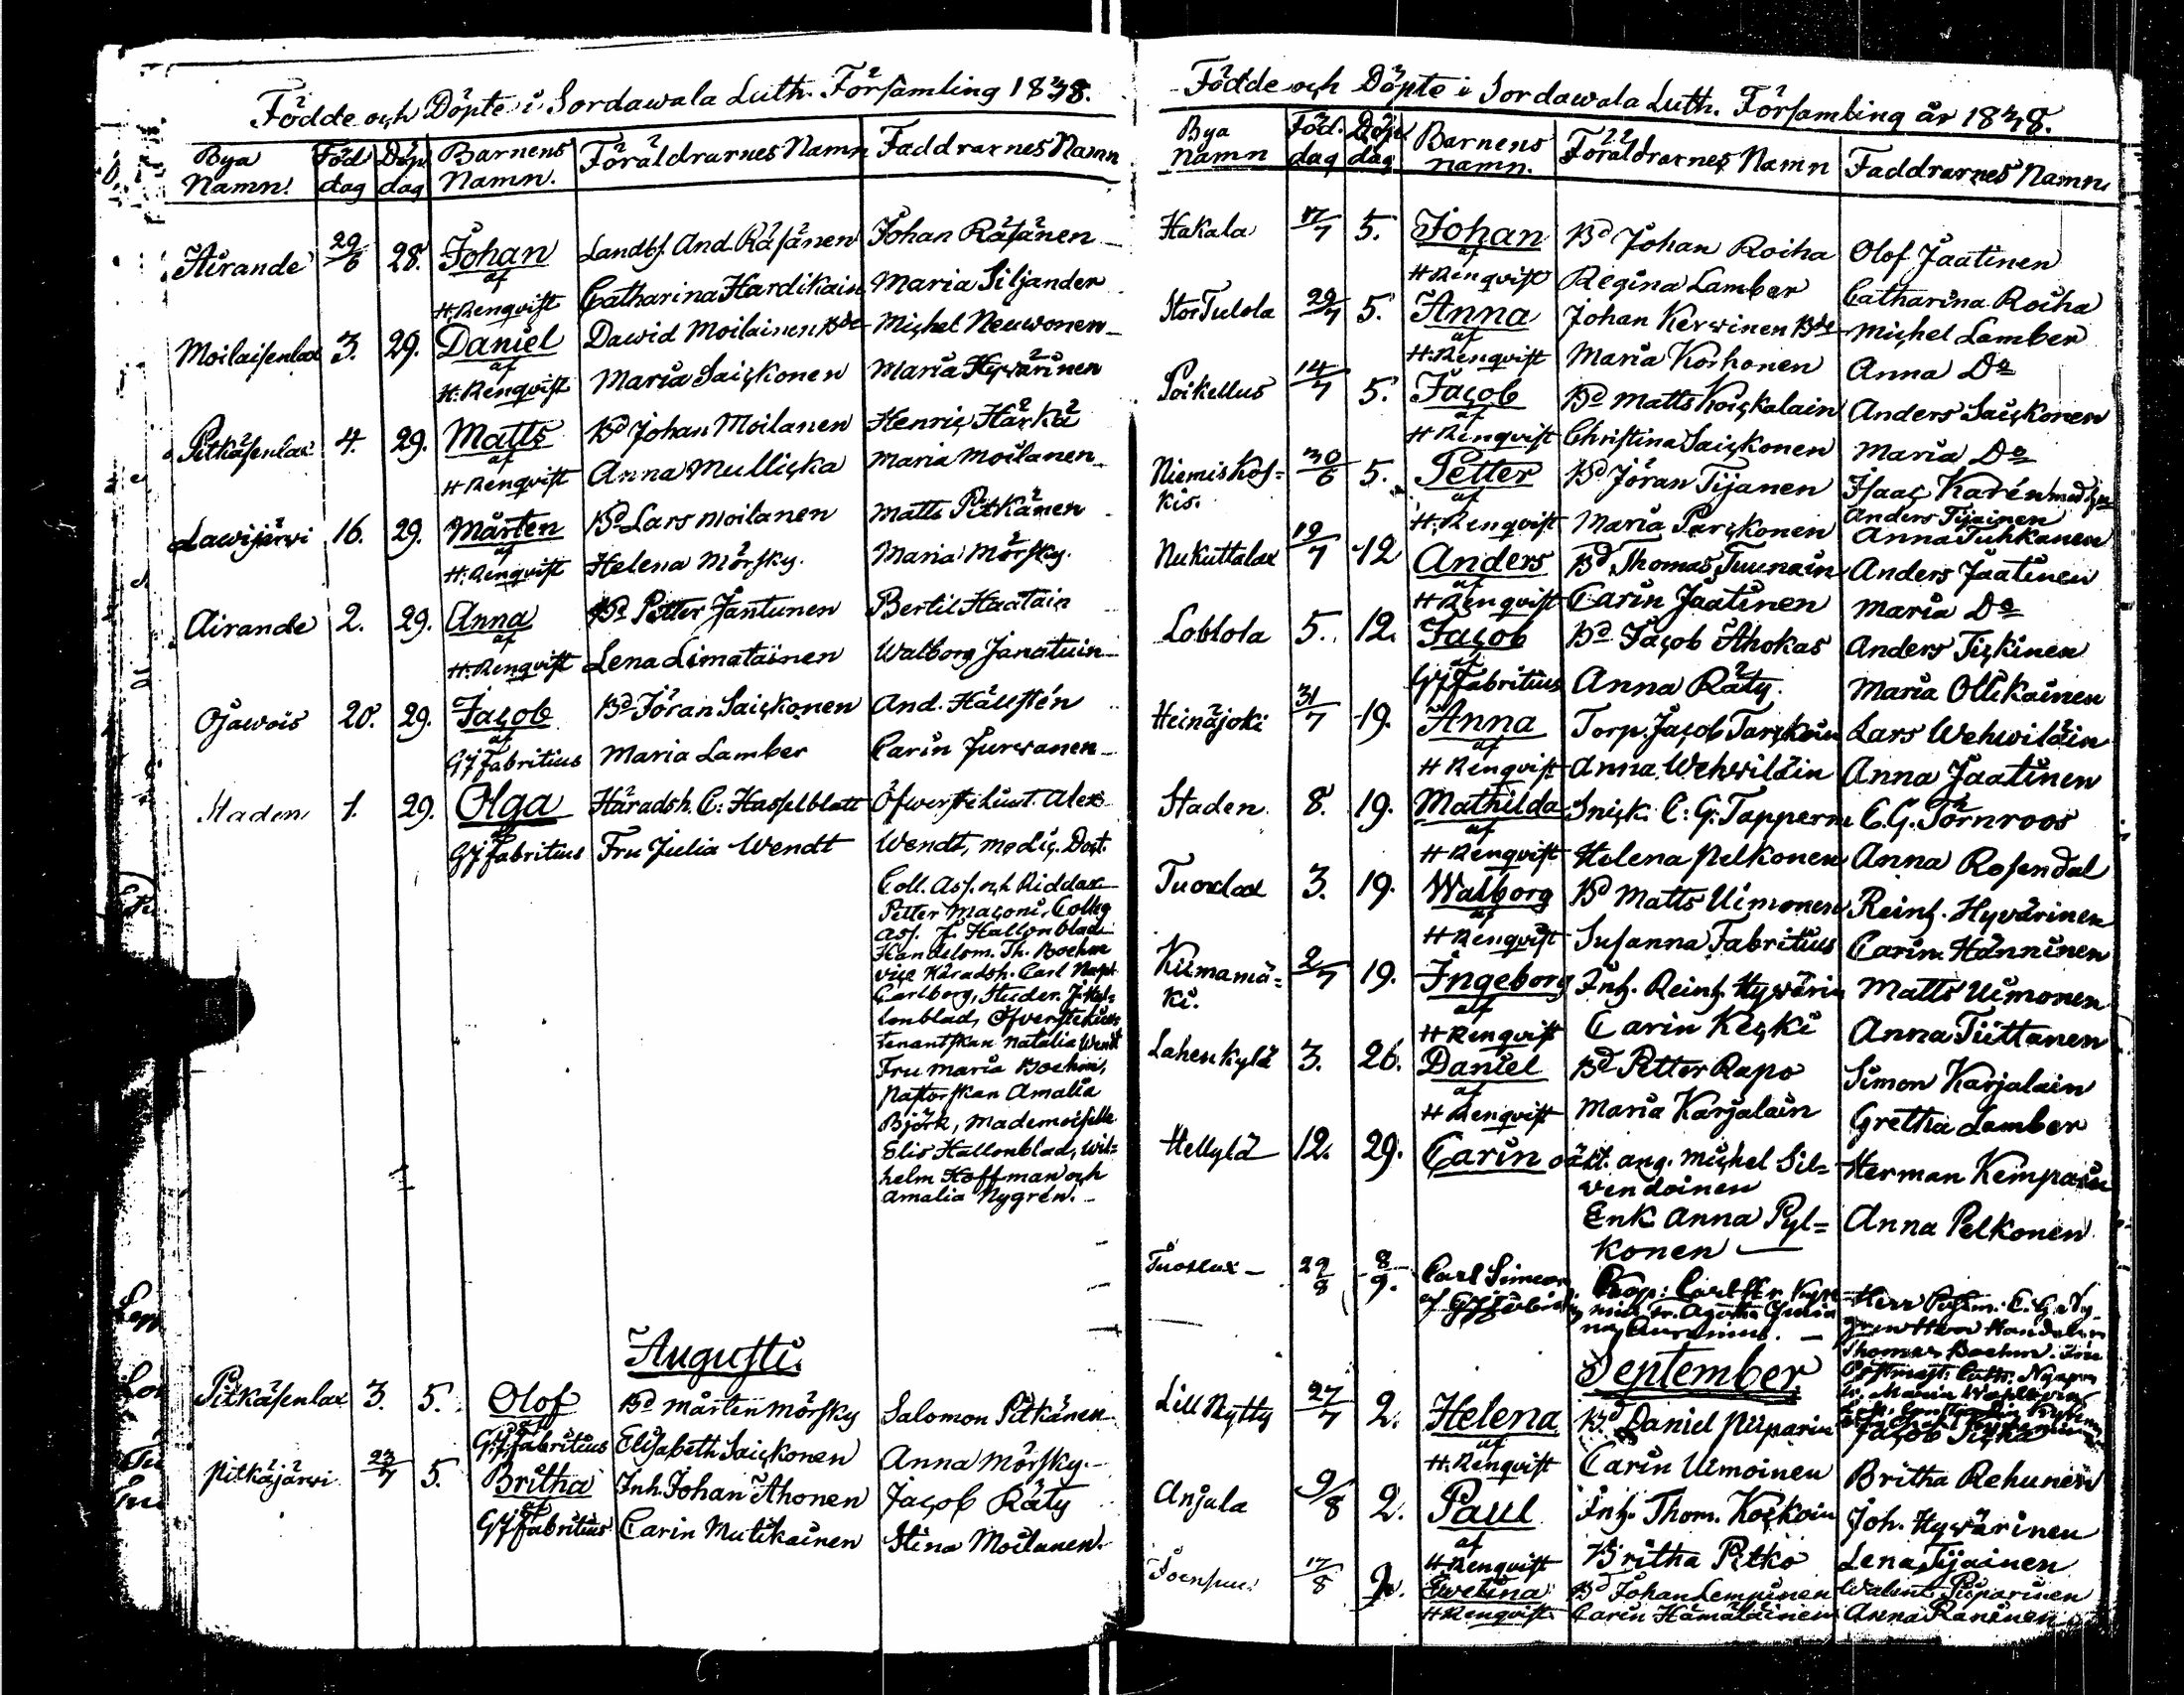 Födde och Döpte i Sordawala Luth. Församling 1838.
Bya Namn. Föd dag Döp. dag Barnens Namn. Föräldrarnes Namn Faddrarnes Namn
Airande 29/6 28. Johan Landtf. And. Räsänen Johan Räsänen
af H. Renqvist Catharina Hardikain Maria Siljander
Moilaisenlax 3. 29. Daniel Dawid Moilainen Bde Michel Neuwonen
af H. Renqvist Maria Saickonen Maria Hyvärinen
Pitkäsenlax 4. 29. Matts Bd Johan Moilanen Henric Härkä
af H Renqvist Anna Mullicka Maria Moilanen
Lawijärwi 16. 29. Mårten Bd Lars Moilanen Matts Pitkänen
af H. Renqvist Helena Mörsky. Maria Mörsky.
Airande 2. 29. Anna Bd Petter Jantunen Bertil Haatain
af H. Renqvist Lena Limatainen Walborg Janatuin
Ojawois 20. 29. Jacob Bd Jöran Saickonen And. Hällstén
af GJ Fabritius Maria Lamber Carin Jurwanen
Staden 1. 29. Olga Häradsh. C. Hasselblatt Öfwerstelieut. Alex
af GJ Fabritius Fru Julia Wendt Wendt, Medic. Doct.
Coll. Ass. och Riddare
Petter Maconi, Colleg
Ass. F. Hallonblad
Handelsm. Th. Boehm
vice Häradsh. Carl
Carlborg, Studer. J. Hal=
lonblad, Öfverstelieu
tenantskan Natalia Wendt
Fru Maria Boehm,
Pastorskan Amalia
Björk, Mademoiselle
Elis Hallonblad, Wil=
helm Hoffman och
Amalia Nygrén.
Augusti.
Pitkäsenlax 3. 5. Olof Bd Mårten Mörsky Salomon Pitkänen
af GJ Fabritius Elisabeth Saickonen Anna Mörsky.
Pitkäjärwi 23/7 5. Britha Inh. Johan Ahonen Jacob Räty
af GJ Fabritius Carin Mutikainen Stina Moilanen.
Födde och Döpte i Sordawala Luth. Församling år 1838.
Bya namn Föd. dag Döp. dag Barnens namn. Föräldrarnes Namn Faddrarnes Namn
Hakala 17/7 5. Johan Bd Johan Roiha Olof Jaatinen
af H Renqvist Regina Lamber Catharina Roiha
Stor Tulola 29/7 5. Anna Johan Kerwinen Bde Michel Lamber
af H. Renqvist Maria Korhonen Anna Do
Poikellus 14/7 5. Jacob Bd Matts Koickalain Anders Saickonen
af H Renqvist Christina Saickonen Maria Do
Niemiskos= 30/6 5. Petter Bd Jöran Tijanen Isaac Karén
kis. Anders Tijainen
af H. Renqvist Maria Parckonen Anna Tuhkanen
Nukuttalax 19/7 12 Anders Bd Thomas Tuunain Anders Jaatinen
af H Renqvist Carin Jaatinen Maria Do
Loblola 5. 12. Jacob Bd Jacob Ahokas Anders Tickinen
af GJ Fabritius Anna Räty. Maria Ollikainen
Heinäjoki 31/7 19. Anna Torp. Jacob Tarckoin Lars Wehwiläin
af H Renqvist Anna Wehwiläin Anna Jaatinen
Staden 8. 19. Mathilda Snick. C. G. Tapperm C. G. Törnroos
af H Renqvist Helena Pelkonen Anna Rosendal
Tuoxlax 3. 19. Walborg Bd Matts Uimonen Reinh. Hyvärinen
af H Renqvist Susanna Fabritius Carin Hänninen
Kiimamä= 2/7 19. Ingeborg Inh. Reinh. Hyväri Matts Uimonen
ki. af H Renqvist Carin Kecki Anna Tiittanen
Lahenkylä 3. 26. Daniel Bd Petter Rapo Simon Karjalain
af H Renqvist Maria Karjalain Gretha Lamber
Hellylä 12. 29. Carin oäkt. ang. Michel Sil= Herman Kempain
vendoinen
Enk. Anna Pyl= Anna Pelkonen
konen
Tuoslax 29/8 8/9. Carl Simeon
September
Lill Nytty 27/7 2. Helena Bd Daniel Piiparin Jacob Ticka
af H. Renqvist Carin Uimoinen Britha Rehunen
Anjala 9/8 2. Paul Inh. Thom. Kockoin Joh. Hyvärinen
af H Renqvist Britha Pitko Lena Tijainen
17/8 2. Ewelina Bd Johan Lempinen Walent. Piiparinen
H Renqvist Carin Hämäläinen Anna Raninen